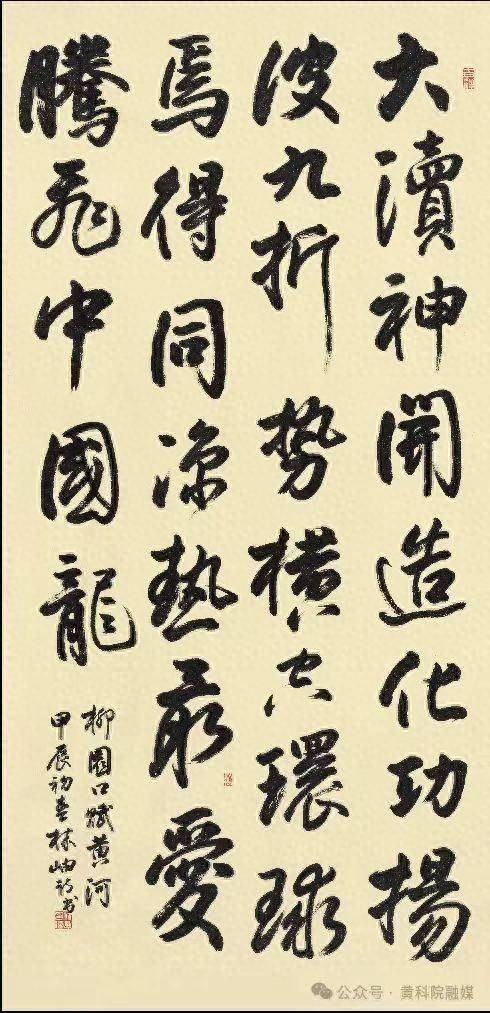 大瀆神開造化功揚
波九折势橫空環球
焉得同涼熱最愛
騰飛中國龍
柳園口賦黄河
甲辰初春林岫书
公众号·黄科院融媒